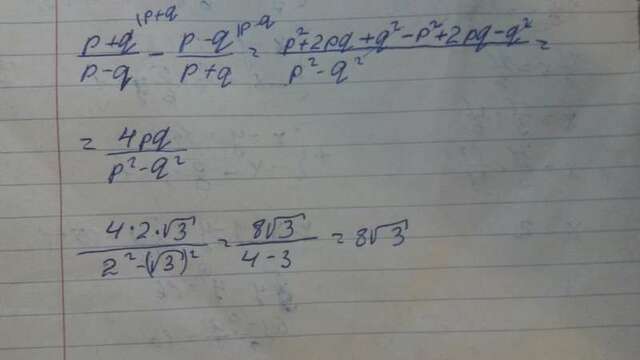 (p+q)/(p-q) \p+q - (p-q)/(p+q) \p-q = (p²+2pq+q²-p²+2pq-q²)/(p²-q²) =
= 4pq/(p²-q²)
(4·2·√3)/(2²-(√3)²) = 8√3/(4-3) = 8√3